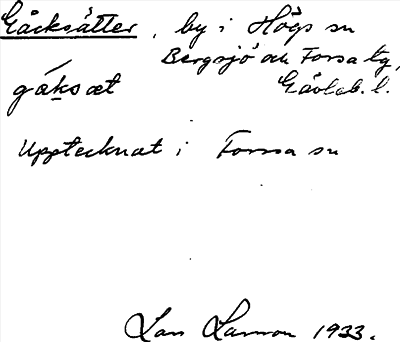 Gåcksätter, by i Högs sn
Bergsjö och Forsa tg,
gáksæt Gävleb. l.
Upptecknat i Forssa sn
Lars Larsson 1933.